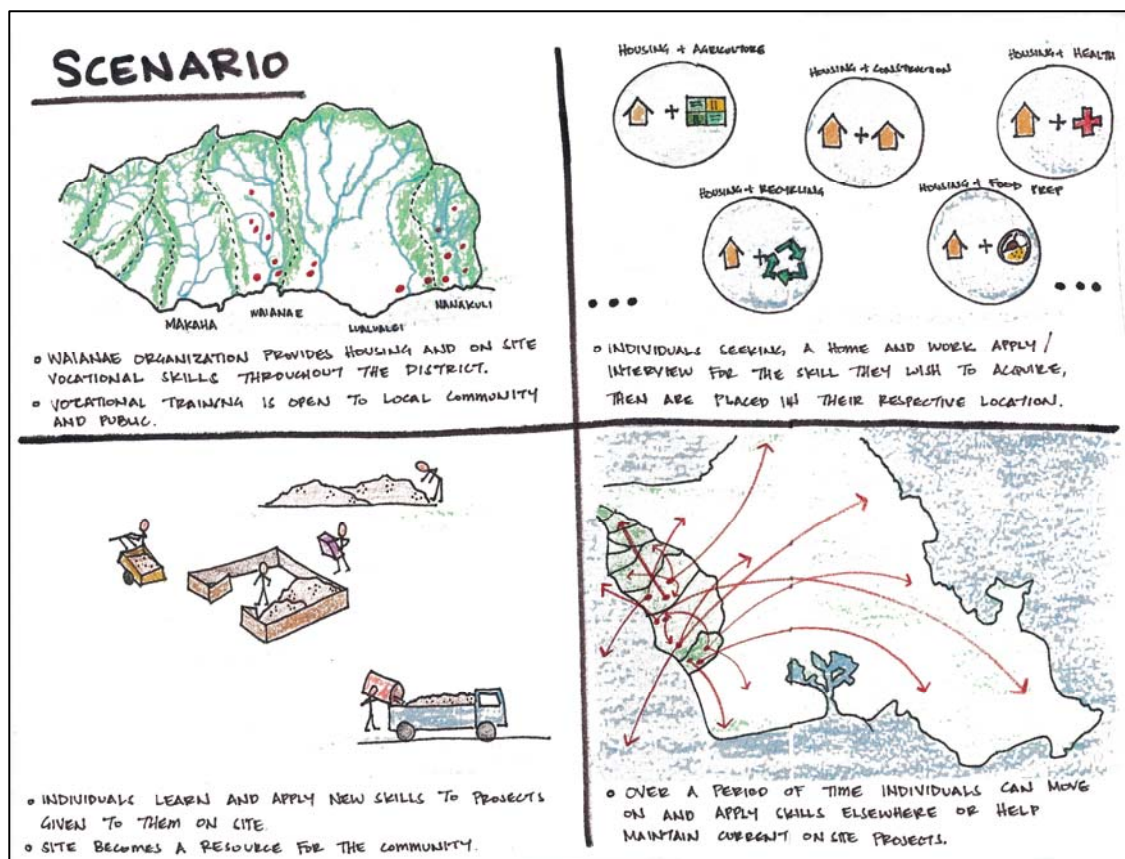 SCENARIO
MAKAHA
WAIANAE
LUALUALEI
NANAKULI
• WAIANAE ORGANIZATION PROVIDES HOUSING AND ON SITE
VOCATIONAL SKILLS THROUGHOUT THE DISTRICT.
• VOTATIONAL TRAINING IS OPEN TO LOCAL COMMUNITY
AND PUBLIC.
HOUSING + AGRICULTURE
HOUSING + CONSTRUCTION
HOUSING + HEALTH
HOUSING + RECYCLING
HOUSING + FOOD PREP
• INDIVIDUALS SEEKING A HOME AND WORK APPLY /
INTERVIEW FOR THE SKILL THEY WISH TO ACQUIRE,
THEN ARE PLACED IN THEIR RESPECTIVE LOCATION.
• INDIVIDUALS LEARN AND APPLY NEW SKILLS TO PROJECTS
GIVEN TO THEM ON SITE.
• SITE BECOMES A RESOURCE FOR THE COMMUNITY.
• OVER A PERIOD OF TIME INDIVIDUALS CAN MOVE
ON AND APPLY SKILLS ELSEWHERE OR HELP
MAINTAIN CURRENT ON SITE PROJECTS.